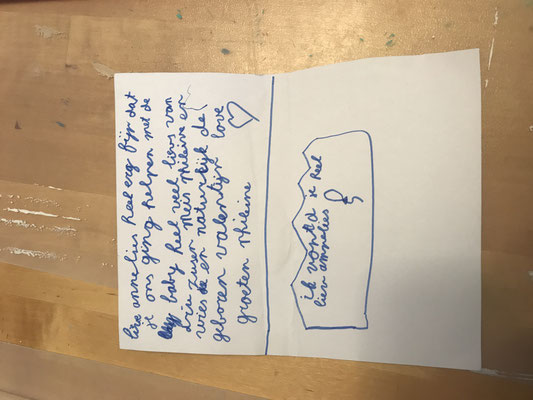 lieve annelies heel erg fijn dat
je ons ging helpen met de
baby heel veel lievs van
drie zusen Meis Phileine en
wies de en natuurlijk de
geboren valentijn love
groeten phileine
ik vontd x heel
liev annelies